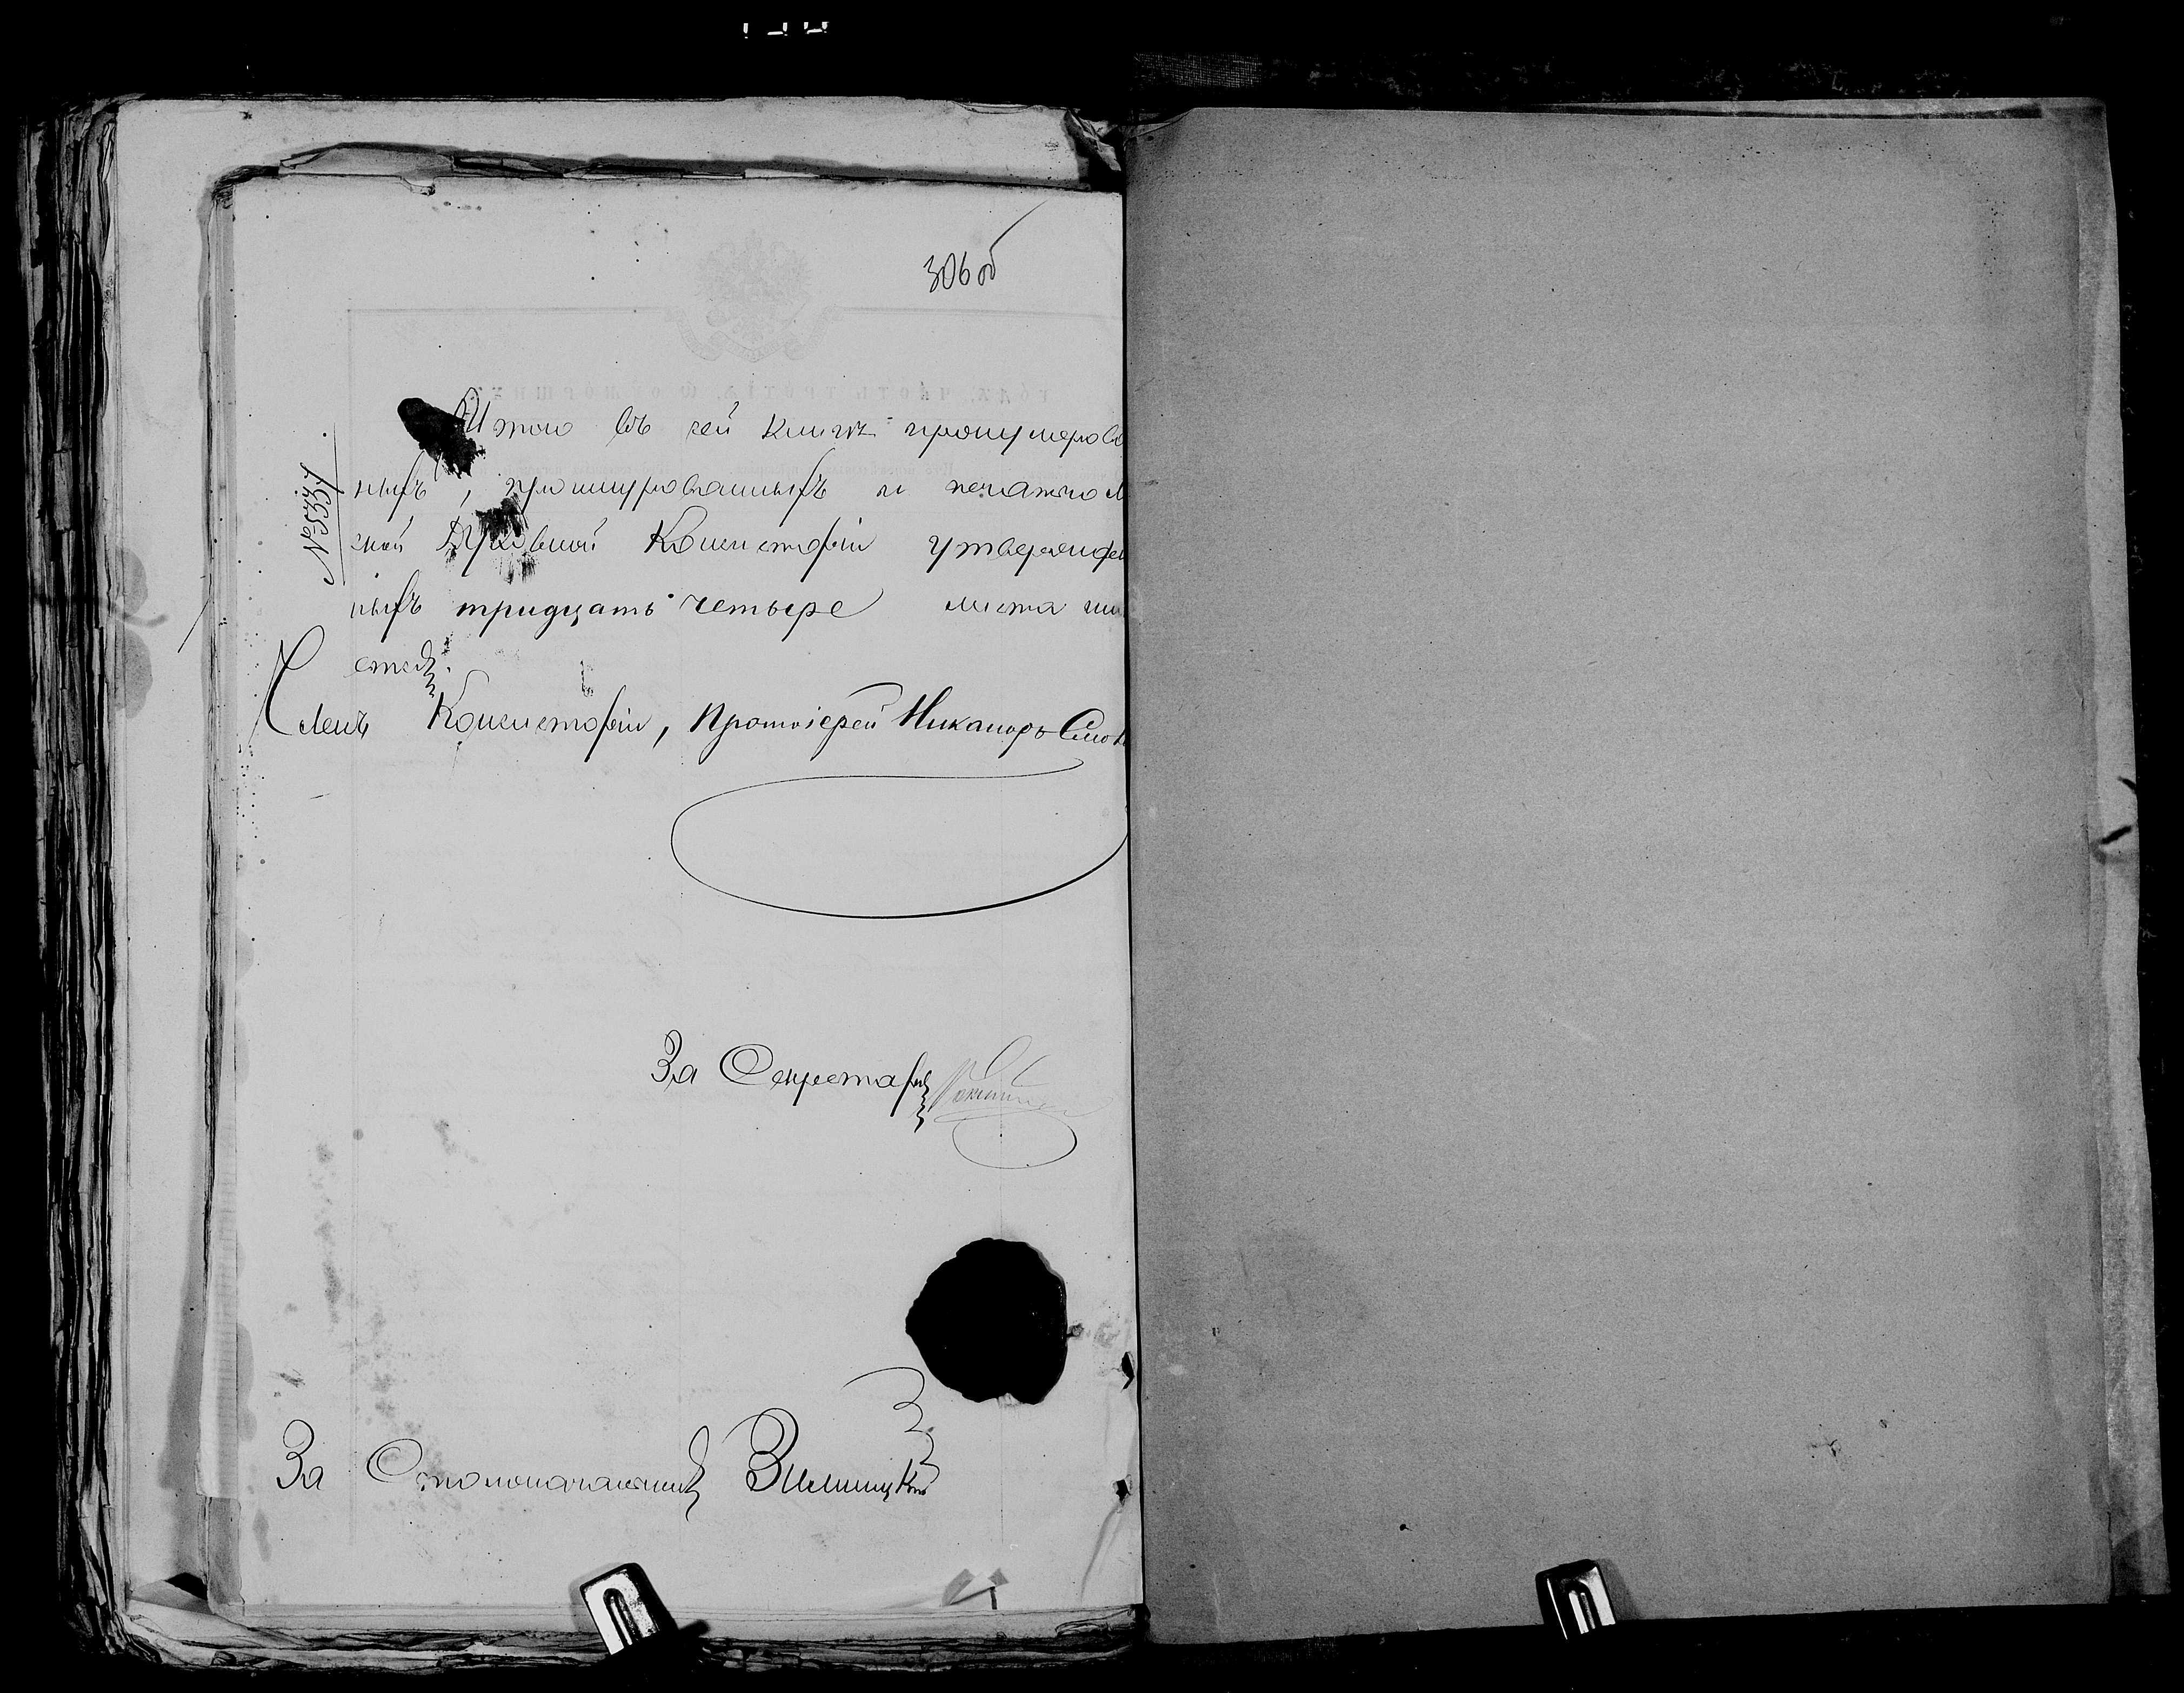 306 об
№ 5337.
Итого въ сей книгѣ пронумеров
ныхъ, прошнурованныхъ и печатью
ной Духовной Консисторіи утвержден
ныхъ тридцать четыре листа
Членъ Консисторіи, Протоіерей Никаноръ
За Секретаря
За Столоначальника